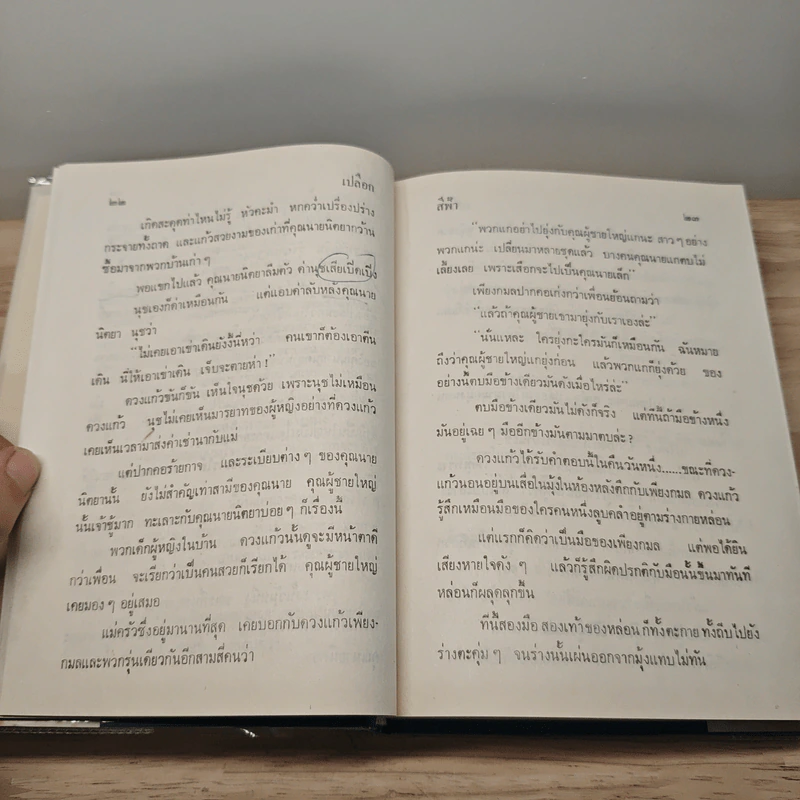 ๒๒
เปลือก
เกิดสะดุดท่าไหนไม่รู้ หัวคะมำ หกคว่ำเปรื่องปร่าง
กระจายทั้งถาด และแก้วสวยงามของเก่าที่คุณนายนิตยากว้าน
ซื้อมาจากพวกบ้านเก่า ๆ
พอแขกไปแล้ว คุณนายนิตยาลืมตัว ด่านุชเสียเปิดเปิง
นุชเองก็ด่าเหมือนกัน แต่แอบด่าลับหลังคุณนาย
นิตยา นุชว่า
“ไม่เคยเอาเข่าเดินยังงี้นี่หว่า คนเขาก็ต้องเอาตีน
เดิน นี่ให้เอาเข่าเดิน เจ็บจะตายห่า !”
ดวงแก้วขันก็ขัน เห็นใจนุชด้วย เพราะนุชไม่เหมือน
ดวงแก้ว นุชไม่เคยเห็นมารยาทของผู้หญิงอย่างที่ดวงแก้ว
เคยเห็นเวลามาส่งค่าเช่านากับแม่
แต่ปากคอร้ายกาจ และระเบียบต่าง ๆ ของคุณนาย
นิตยานั้น ยังไม่สำคัญเท่าสามีของคุณนาย คุณผู้ชายใหญ่
นั้นเจ้าชู้มาก ทะเลาะกับคุณนายนิตยาบ่อย ๆ ก็เรื่องนี้
พวกเด็กผู้หญิงในบ้าน ดวงแก้วนั้นดูจะมีหน้าตาดี
กว่าเพื่อน จะเรียกว่าเป็นคนสวยก็เรียกได้ คุณผู้ชายใหญ่
เคยมอง ๆ อยู่เสมอ
แม่ครัวซึ่งอยู่มานานที่สุด เคยบอกกับดวงแก้วเพียง-
กมลและพวกรุ่นเดียวกันอีกสามสี่คนว่า
สีฟ้า
๒๓
“พวกแกอย่าไปยุ่งกับคุณผู้ชายใหญ่แกนะ สาว ๆ อย่าง
พวกแกน่ะ เปลี่ยนมาหลายชุดแล้ว บางคนคุณนายแกตบไม่
เลี้ยงเลย เพราะเสือกจะไปเป็นคุณนายเล็ก”
เพียงกมลปากคอเก่งกว่าเพื่อนย้อนถามว่า
“แล้วถ้าคุณผู้ชายเขามายุ่งกับเราเองล่ะ”
“นั่นแหละ ใครยุ่งกะใครมันก็เหมือนกัน ฉันหมาย
ถึงว่าคุณผู้ชายใหญ่แกยุ่งก่อน แล้วพวกแกก็ยุ่งด้วย ของ
อย่างนี้ตบมือข้างเดียวมันดังเมื่อไหร่ล่ะ”
ตบมือข้างเดียวมันไม่ดังก็จริง แต่ทีนี้ถ้ามือข้างหนึ่ง
มันอยู่เฉย ๆ มืออีกข้างมันตามมาตบล่ะ ?
ดวงแก้วได้รับคำตอบนี้ในคืนวันหนึ่ง......ขณะที่ดวง-
แก้วนอนอยู่บนเสื่อในมุ้งในห้องหลังตึกกับเพียงกมล ดวงแก้ว
รู้สึกเหมือนมือของใครคนหนึ่งลูบคลำอยู่ตามร่างกายหล่อน
แต่แรกก็คิดว่าเป็นมือของเพียงกมล แต่พอได้ยิน
เสียงหายใจดัง ๆ แล้วก็รู้สึกผิดปรกติกับมือนั้นขึ้นมาทันที
หล่อนก็ผลุดลุกขึ้น
ทีนี้สองมือ สองเท้า ของหล่อน ก็ทั้งตะกาย ทั้งถีบไปยัง
ร่างตะคุ่ม ๆ จนร่างนั้นเผ่นออกจากมุ้งแทบไม่ทัน